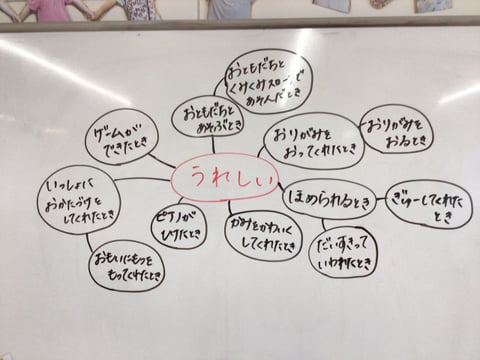 おともだちと
くみくみスロープで
あそんだとき
おともだちと
あそぶとき
ゲームが
できたとき
おりがみを
おってくれたとき
おりがみを
おるとき
うれしい
いっしょに
おかたづけを
してくれたとき
ほめられるとき
ぎゅーしてくれた
とき
ピアノが
ひけたとき
かみをかわいく
してくれたとき
だいすきって
いわれたとき
おもいにもつを
もってくれたとき